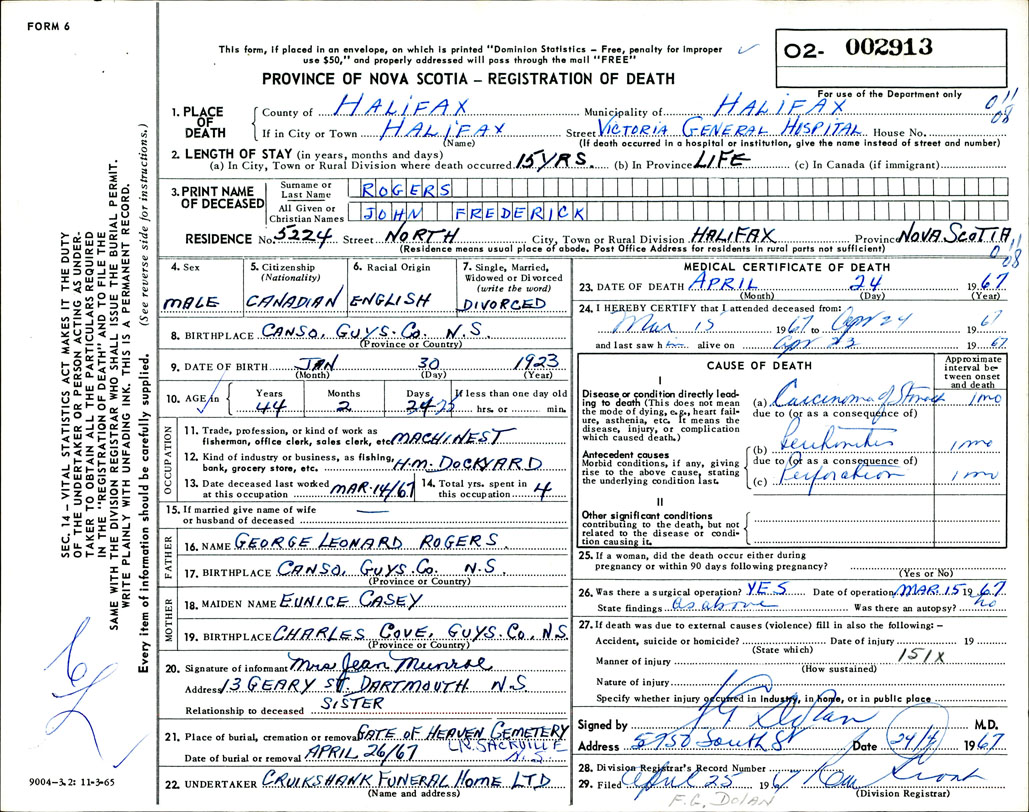 FORM 6
This form, if placed in an envelope, on which is printed "Dominion Statistics – Free, penalty for improper
use $50," and properly addressed will pass through the mail "FREE"
02- 002913
PROVINCE OF NOVA SCOTIA – REGISTRATION OF DEATH
For use of the Department only
1. PLACE OF DEATH
County of HALIFAX Municipality of HALIFAX 011 08
If in City or Town HALIFAX Street VICTORIA GENERAL HOSPITAL House No.
(Name) (If death occurred in a hospital or institution, give the name instead of street and number)
2. LENGTH OF STAY (in years, months and days)
(a) In City, Town or Rural Division where death occurred 15 YRS. (b) In Province LIFE (c) In Canada (if immigrant)
3. PRINT NAME OF DECEASED
Surname or Last Name ROGERS
All Given or Christian Names JOHN FREDERICK
RESIDENCE No. 5224 Street NORTH City, Town or Rural Division HALIFAX Province NOVA SCOTIA
(Residence means usual place of abode. Post Office Address for residents in rural parts not sufficient) 011 08
4. Sex MALE
5. Citizenship (Nationality) CANADIAN
6. Racial Origin ENGLISH
7. Single, Married, Widowed or Divorced (write the word) DIVORCED
8. BIRTHPLACE CANSO, GUYS. CO. N.S.
(Province or Country)
9. DATE OF BIRTH JAN 30 1923
(Month) (Day) (Year)
10. AGE in Years 44 Months 2 Days 24 25 If less than one day old hrs. or min.
OCCUPATION
11. Trade, profession, or kind of work as
fisherman, office clerk, sales clerk, etc. MACHINEST
12. Kind of industry or business, as fishing,
bank, grocery store, etc. H.M. DOCKYARD
13. Date deceased last worked at this occupation MAR. 14/67 14. Total yrs. spent in this occupation 4
15. If married give name of wife
or husband of deceased —
FATHER
16. NAME GEORGE LEONARD ROGERS.
17. BIRTHPLACE CANSO, GUYS. CO. N.S.
(Province or Country)
MOTHER
18. MAIDEN NAME EUNICE CASEY
19. BIRTHPLACE CHARLES COVE, GUYS. CO. N.S.
(Province or Country)
20. Signature of informant Mrs. Jean Munroe
Address 13 GEARY ST. DARTMOUTH N.S.
Relationship to deceased SISTER
21. Place of burial, cremation or removal GATE OF HEAVEN CEMETERY
LR. SACKVILLE N.S.
Date of burial or removal APRIL 26/67
22. UNDERTAKER CRUIKSHANK FUNERAL HOME LTD
(Name and address)
MEDICAL CERTIFICATE OF DEATH
23. DATE OF DEATH APRIL 24 1967
(Month) (Day) (Year)
24. I HEREBY CERTIFY that I attended deceased from:
Mar 15 1967 to Apr 24 1967
and last saw him alive on Apr 23 1967
CAUSE OF DEATH
Approximate interval between onset and death
I
Disease or condition directly leading to death (This does not mean
the mode of dying, e.g., heart failure, asthenia, etc. It means the
disease, injury, or complication
which caused death.)
(a) Carcinoma of Stomach 1 mo
due to (or as a consequence of)
(b) Peritonitis 1 mo
Antecedent causes
Morbid conditions, if any, giving
rise to the above cause, stating
the underlying condition last.
due to (or as a consequence of)
(c) Perforation 1 mo
II
Other significant conditions
contributing to the death, but not
related to the disease or condition causing it.
25. If a woman, did the death occur either during
pregnancy or within 90 days following pregnancy?
(Yes or No)
26. Was there a surgical operation? YES Date of operation MAR. 15 1967.
State findings as above Was there an autopsy? no
27. If death was due to external causes (violence) fill in also the following: –
Accident, suicide or homicide? Date of injury 19
(State which)
Manner of injury 151X
(How sustained)
Nature of injury
Specify whether injury occurred in industry, in home, or in public place
Signed by F G Dolan M.D.
Address 5950 South St Date 24/4 1967
28. Division Registrar's Record Number
29. Filed April 25 1967
(Division Registrar)
F.G. DOLAN
SEC. 14 – VITAL STATISTICS ACT MAKES IT THE DUTY
OF THE UNDERTAKER OR PERSON ACTING AS UNDER-
TAKER TO OBTAIN ALL THE PARTICULARS REQUIRED
IN THE "REGISTRATION OF DEATH" AND TO FILE THE
SAME WITH THE DIVISION REGISTRAR WHO SHALL ISSUE THE BURIAL PERMIT.
WRITE PLAINLY WITH UNFADING INK. THIS IS A PERMANENT RECORD.
Every item of information should be carefully supplied. (See reverse side for instructions.)
9004–3.2: 11-3-65